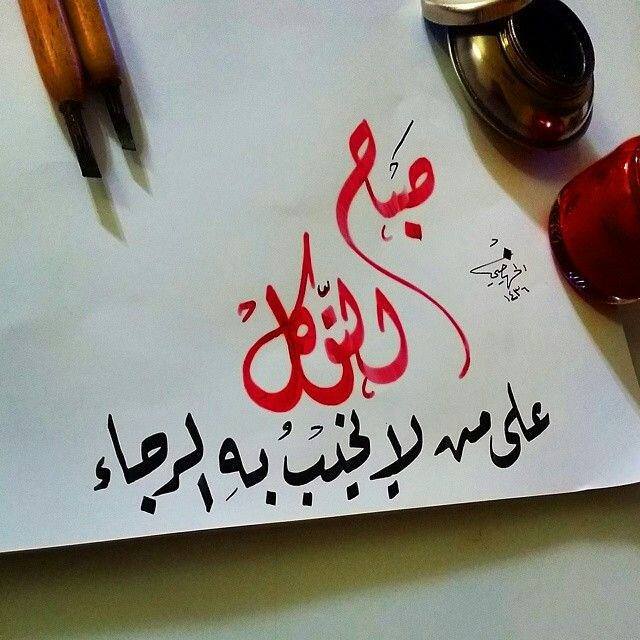 صباح
التوكل
على من لا يخيب به الرجاء
١٤٣٦